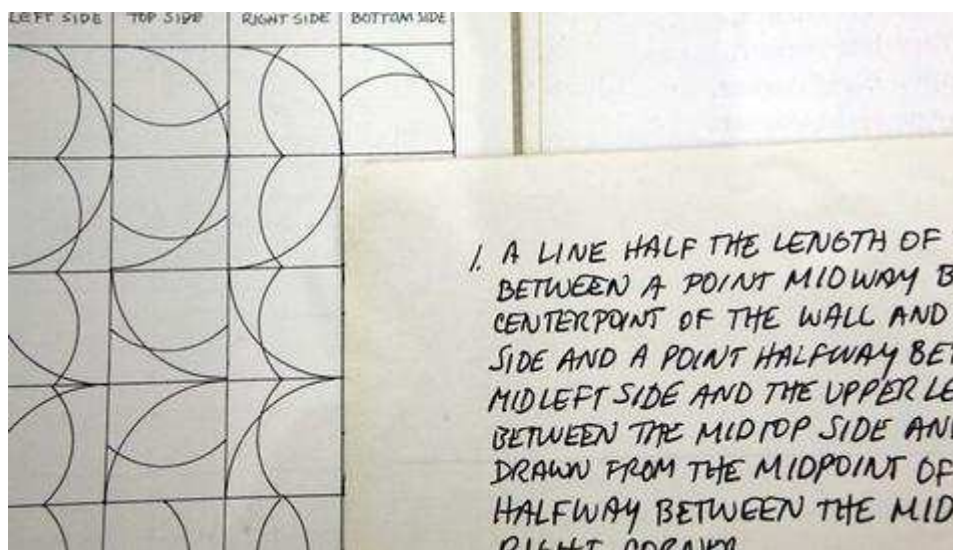 LEFT SIDE TOP SIDE RIGHT SIDE BOTTOM SIDE
1. A LINE HALF THE LENGTH OF
BETWEEN A POINT MIDWAY B
CENTERPOINT OF THE WALL AND
SIDE AND A POINT HALFWAY BET
MIDLEFT SIDE AND THE UPPER LE
BETWEEN THE MIDTOP SIDE AN
DRAWN FROM THE MIDPOINT OF
HALFWAY BETWEEN THE MID
RIGHT CORNER